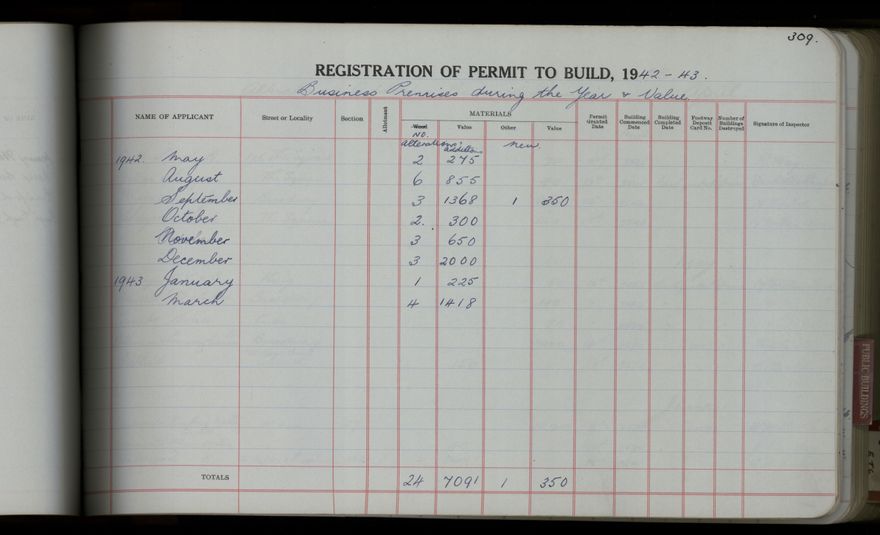 309.
REGISTRATION OF PERMIT TO BUILD, 1942-43.
Business Premises during the Year & Value
NAME OF APPLICANT Street or Locality Section Allotment MATERIALS Permit Granted Date Building Commenced Date Building Completed Date Footway Deposit Card No. Number of Buildings Destroyed Signature of Inspector
Wood Value Other Value
No.
alterations additions new
1942 May 2 275
August 6 855
September 3 1368 1 350
October 2. 300
November 3 650
December 3 2000
1943 January 1 225
March 4 1418
TOTALS 24 7091 1 350
PUBLIC BUILDINGS